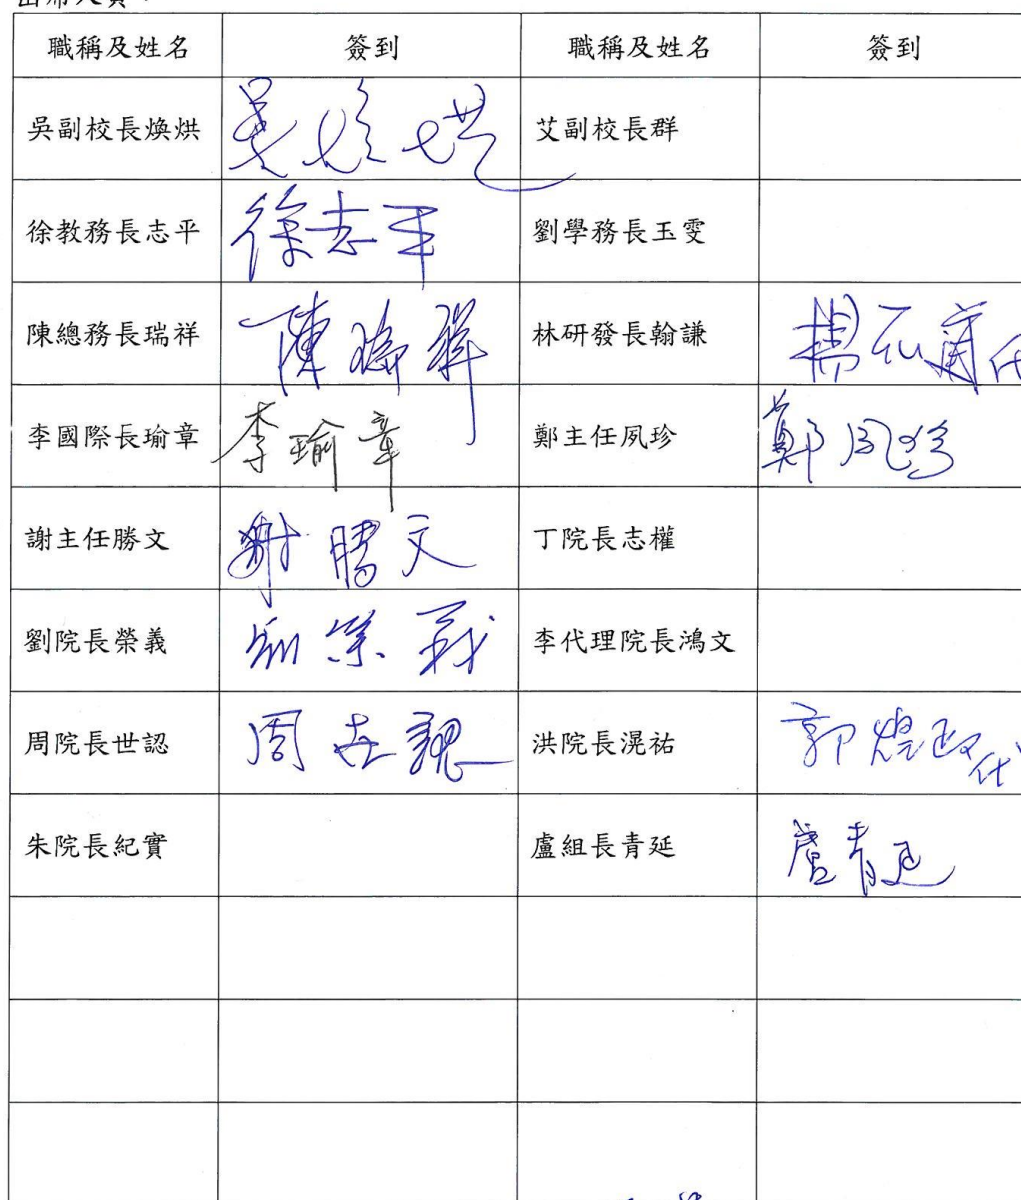 出席人員：
職稱及姓名 簽到 職稱及姓名 簽到
吳副校長煥烘 吳煥烘 艾副校長群
徐教務長志平 徐志平 劉學務長玉雯
陳總務長瑞祥 陳瑞祥 林研發長翰謙 楊 代
李國際長瑜章 李瑜章 鄭主任夙珍 鄭夙珍
謝主任勝文 謝勝文 丁院長志權
劉院長榮義 劉榮義 李代理院長鴻文
周院長世認 周世認 洪院長滉祐 郭煌政代
朱院長紀實 盧組長青延 盧青延